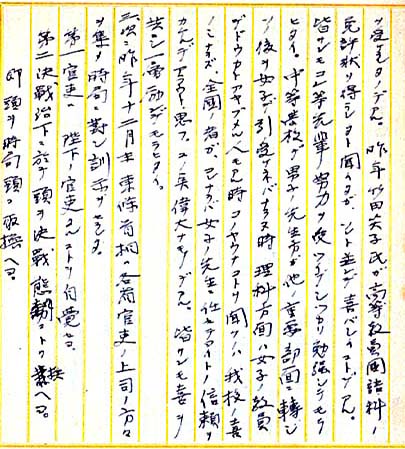 昨年竹田夫子氏ガ高等教員國語科ノ
免許状ヲ得ラレタト聞クガ、喜バシイコトデアル。
皆サンモコノ等先輩ノ努力ヲ受ツイデシッカリ勉強シテモラ
ヒタイ。中等学校ノ男子ノ先生方ガ他ノ重要部面ニ轉ジ
ソノ後ヲ女子ガ引受ケネバナラヌ時 理科方面ハ女子ノ教員
デドウカト時コノヤウナコトヲ聞クノハ我校ノ喜
ノミナラズ全國ノ者ガ、コレナラバ女子ノ先生ニ任セテヨイトノ信頼ヲ
思フ。ソノ偉大ナモノデアル。皆サンモ喜ヲ
共ニシ奮励シテモラヒタイ。
次ニ昨年十二月末東條首相ハ各省官吏ノ上司ノ方々
ヲ集メ時局ニ對シ訓示ヲセラル。
第一官吏ハ 陛下ノ官吏タルコトヲ自覺セヨ。
第二決戰治下ニ於テ頭ヲ決戰態勢ニトリ換ヘヨ。
即頭ヲ時局頭ニ取換ヘヨ。